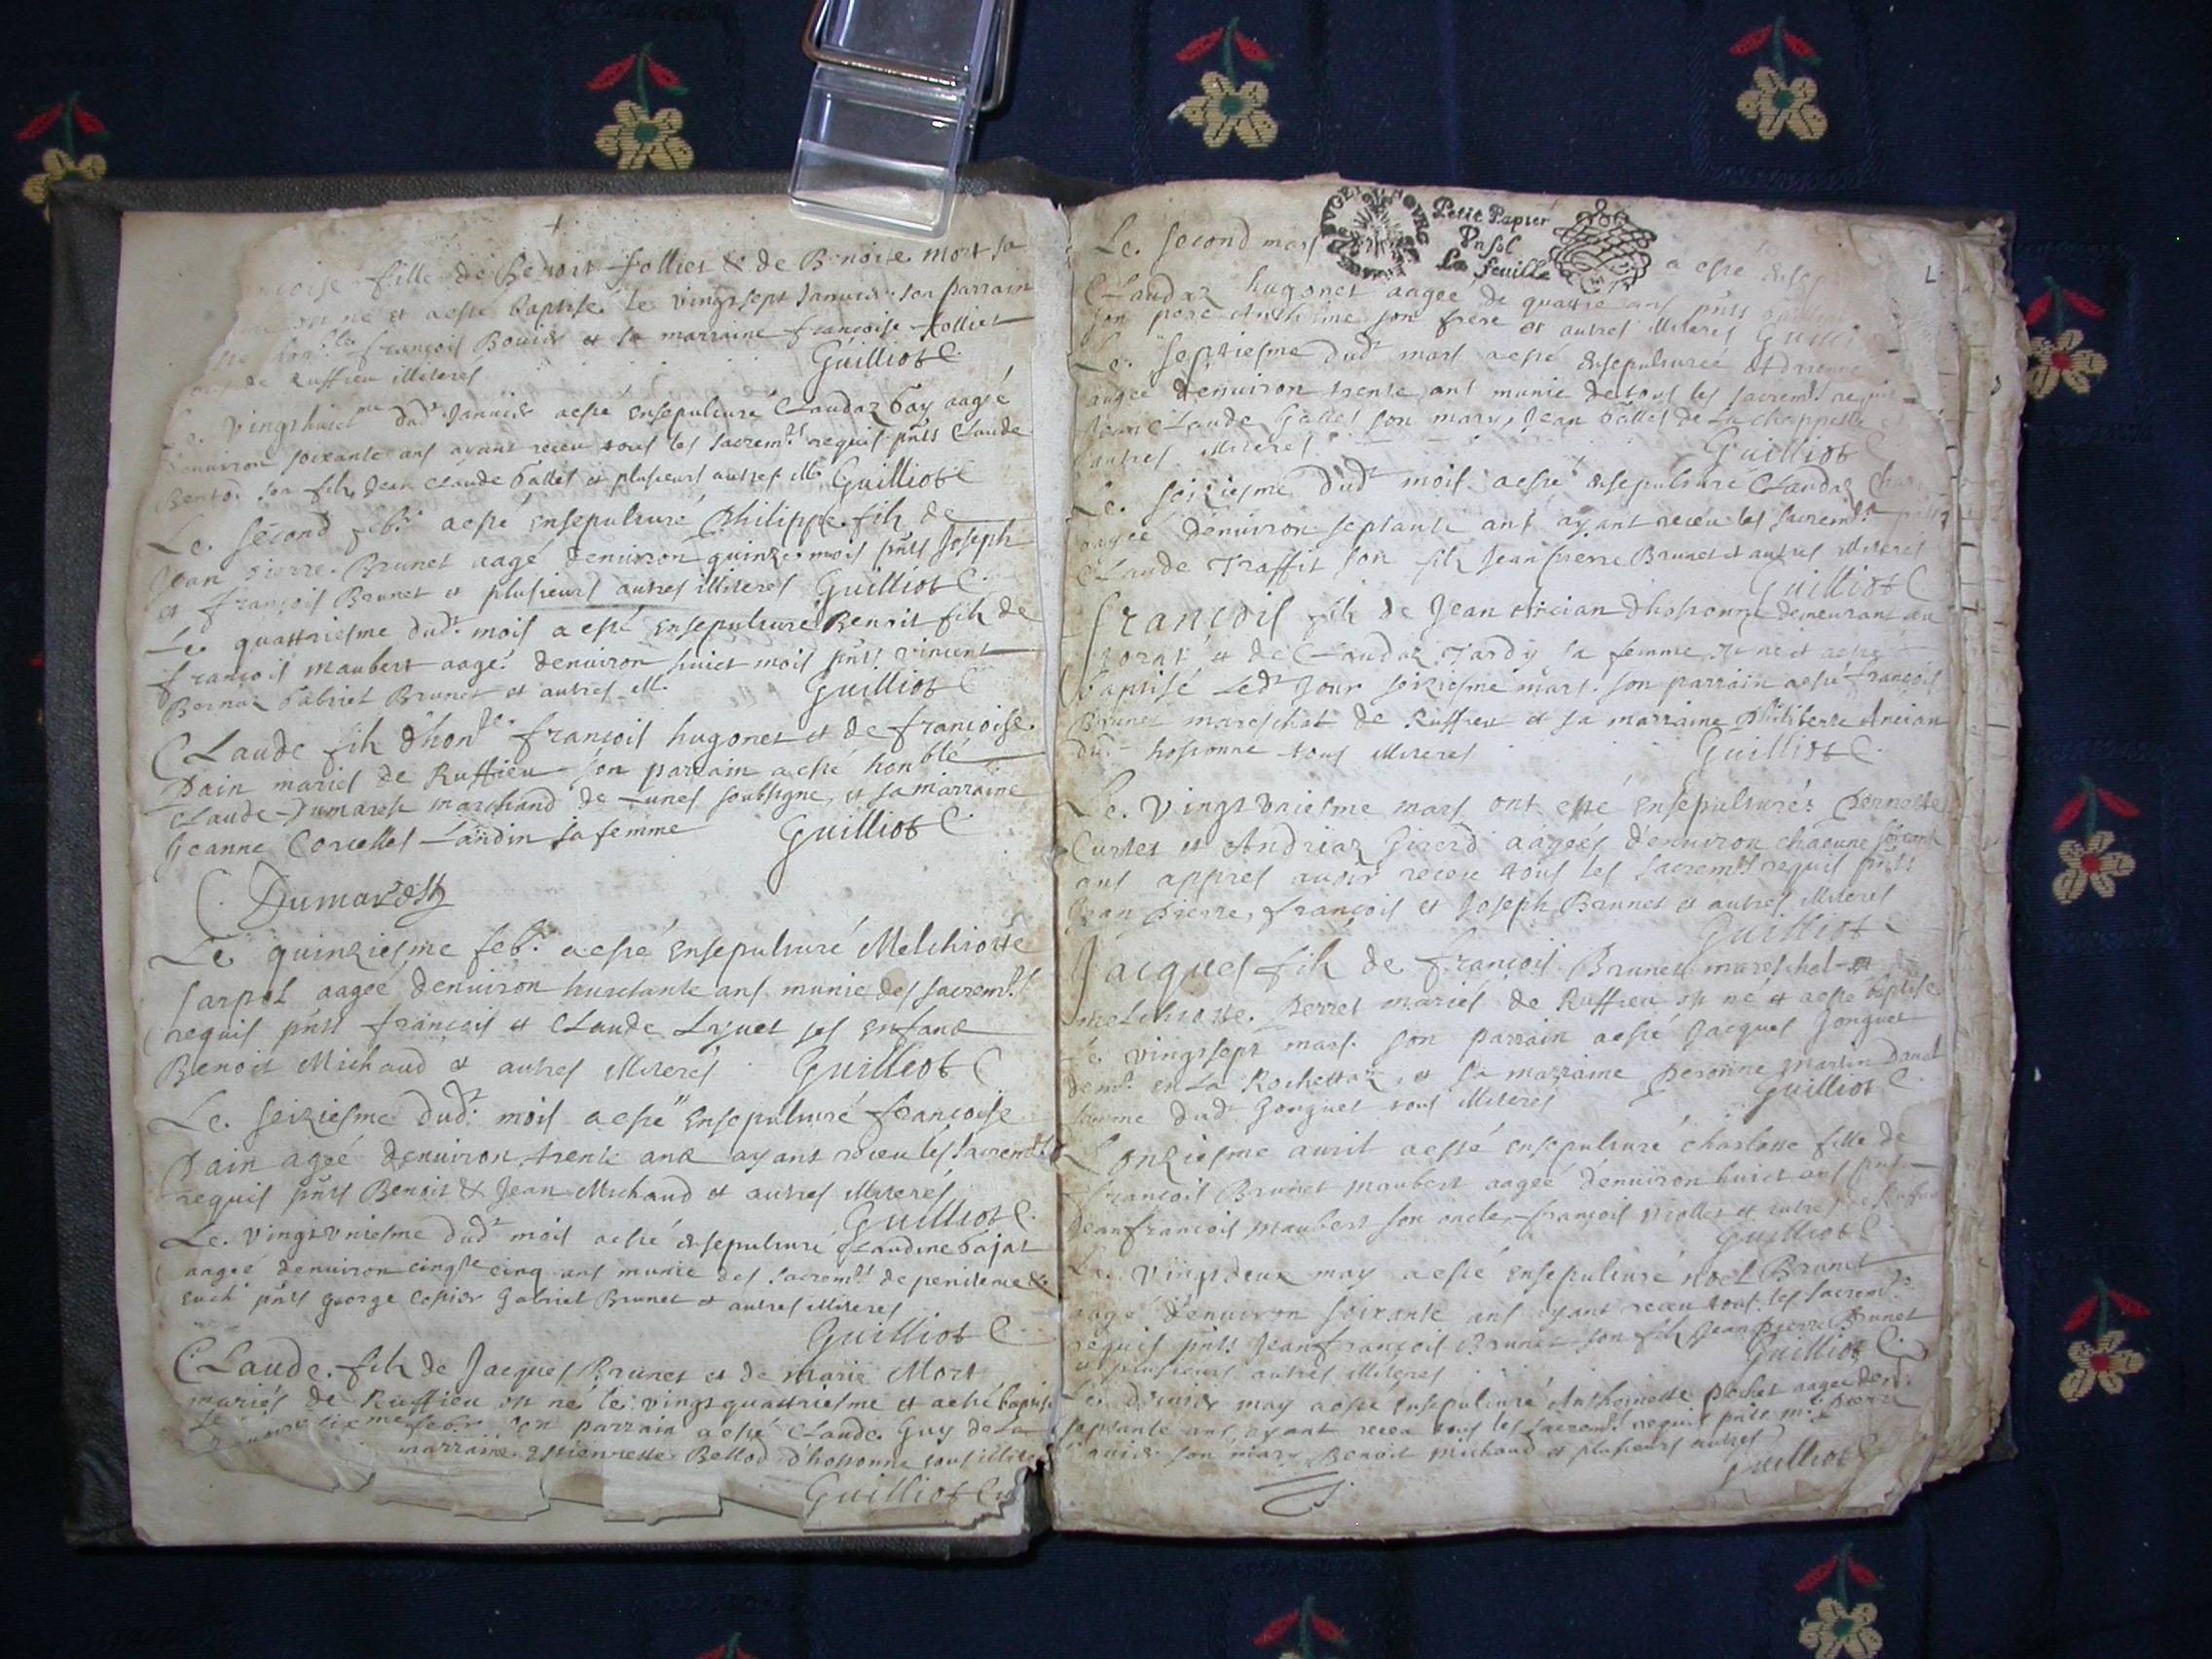 fille de Benoit follier & de Benoite mort sa
est né et a esté baptisé le vingtsept Janvier son parrain
françois Bouvier et sa marraine françoise follier
de Ruffieu illiteres Guilliot C.
Le vingthuict me dud.t Janvier a esté ensepulturé Claudaz bay aageé
denuiron soixante ans ayant receu tous les sacrem.ts requis pnts Claude
son filz Jean Claude Gallet et plusieurs autres ill. Guilliot C
Le second feb.r a esté ensepulturé Philippe filz de
Jean Pierre Brunet aagé denuiron quinze mois pnts Joseph
et françois Brunet et plusieurs autres illiteres Guilliot C.
Le quattriesme dud.t mois a esté ensepulturé Benoit filz de
françois maubert aagé denuiron huict mois pnts vincent
Bornaz Gabriel Brunet et autres ill. Guilliot C
Claude filz d'hon ble françois hugonet et de françoise
Dain mariés de Ruffieu son parrain a esté hon ble
Claude Dumarest marchand de Lunes soubsigne, et sa marraine
Jeanne Corcellet Landin sa femme Guilliot C.
Dumarest
Le quinziesme feb.r a esté ensepulturé Melchiotte
Sarpol aageé denuiron huictante ans munie des sacrem.ts
requis pnts françois et Claude Lyuet ses enfans
Benoit Michaud et autres illiteres Guilliot C
Le seiziesme dud.t mois a esté ensepulturé françoise
Dain ageé denuiron trente ans ayant receu les sacrem.ts
requis pnts Benoit & Jean Michaud et autres illiteres
Guilliot C.
Le vingtvniesme dud.t mois a esté ensepulturé Claudine Gajat
aageé denuiron cinq te cinq ans munie des sacrem.ts de penitence &
euch. pnts George Copier Gabriel Brunet et autres illiteres
Guilliot C
Claude filz de Jacques Brunet et de marie Mort
mariés de Ruffieu est né le vingtquattriesme et a esté baptisé
feb.r son parrain a esté Claude Guy de La
marraine Estiennette Bellod d'hostonne tous illite
Guilliot Cu
Le second mars Petit Papier a esté ensep
Vn sol
La feuille
Claudaz hugonet aageé de quattre ans pnts
son pere Anthelme son frere et autres illiteres Guilli
Le septiesme dud.t mars a esté ensepultureé Andrienne
aageé denuiron trente ans munie de tous les sacrem.ts requis
Jean Claude Gallet son mary, Jean Gallet de La chappelle
autres illiteres Guilliot C
Le seiziesme dud.t mois a esté ensepulturé Claudaz
aageé denuiron septante ans ayant receu les sacrem.ts pnts
Claude Traffit son filz Jean pierre Brunet et autres illiteres
Guilliot C
françois filz de Jean Ancian dhostonne demeurant au
et de Claudaz Tardy sa femme est né et a esté
baptisé Led.t Jour seiziesme mars son parrain a esté françois
Brunet mareschal de Ruffieu et sa marraine Philiberte Ancian
dud.t hostonne tous illiteres Guilliot C.
Le vingtvniesme mars ont esté ensepulturés Pernette
Curtet et Andriaz Girerd aageés denuiron chacune soixante
ans appres auoir receu tous les sacrem.ts requis pnts
Jean Pierre, françois et Joseph Brunet et autres illiteres
Guilliot C
Jacques filz de françois Brunet mareschal et
melchiotte Perret mariés de Ruffieu est né et a esté baptisé
Le vingtsept mars son parrain a esté Jacques Gonguet
dem.t en La Rochettaz, et sa marraine peronne martin Danel
femme dud.t Gonguet tous illiteres Guilliot C.
L'onziesme auril a esté ensepulturé charlotte fille de
françois Brunet maubert aageé denuiron huict ans pnts
Jean françois maubert son oncle, françois violler et autres de Ruffieu
Guilliot C
Le vingtdeux may a esté ensepulturé noel Brunet
aagé denuiron soixante ans ayant receu tous les sacrem.ts
requis pnts Jean françois Brunet son filz Jean Pierre Brunet
et plusieurs autres illiteres Guilliot C.
Le dernier may a esté ensepulturé Anthoinette pochet aageé den.
septante ans, ayant receu tous les sacrem.ts requis pnts m.e Pierre
son mary Benoit michaud et plusieurs autres
Guilliot C